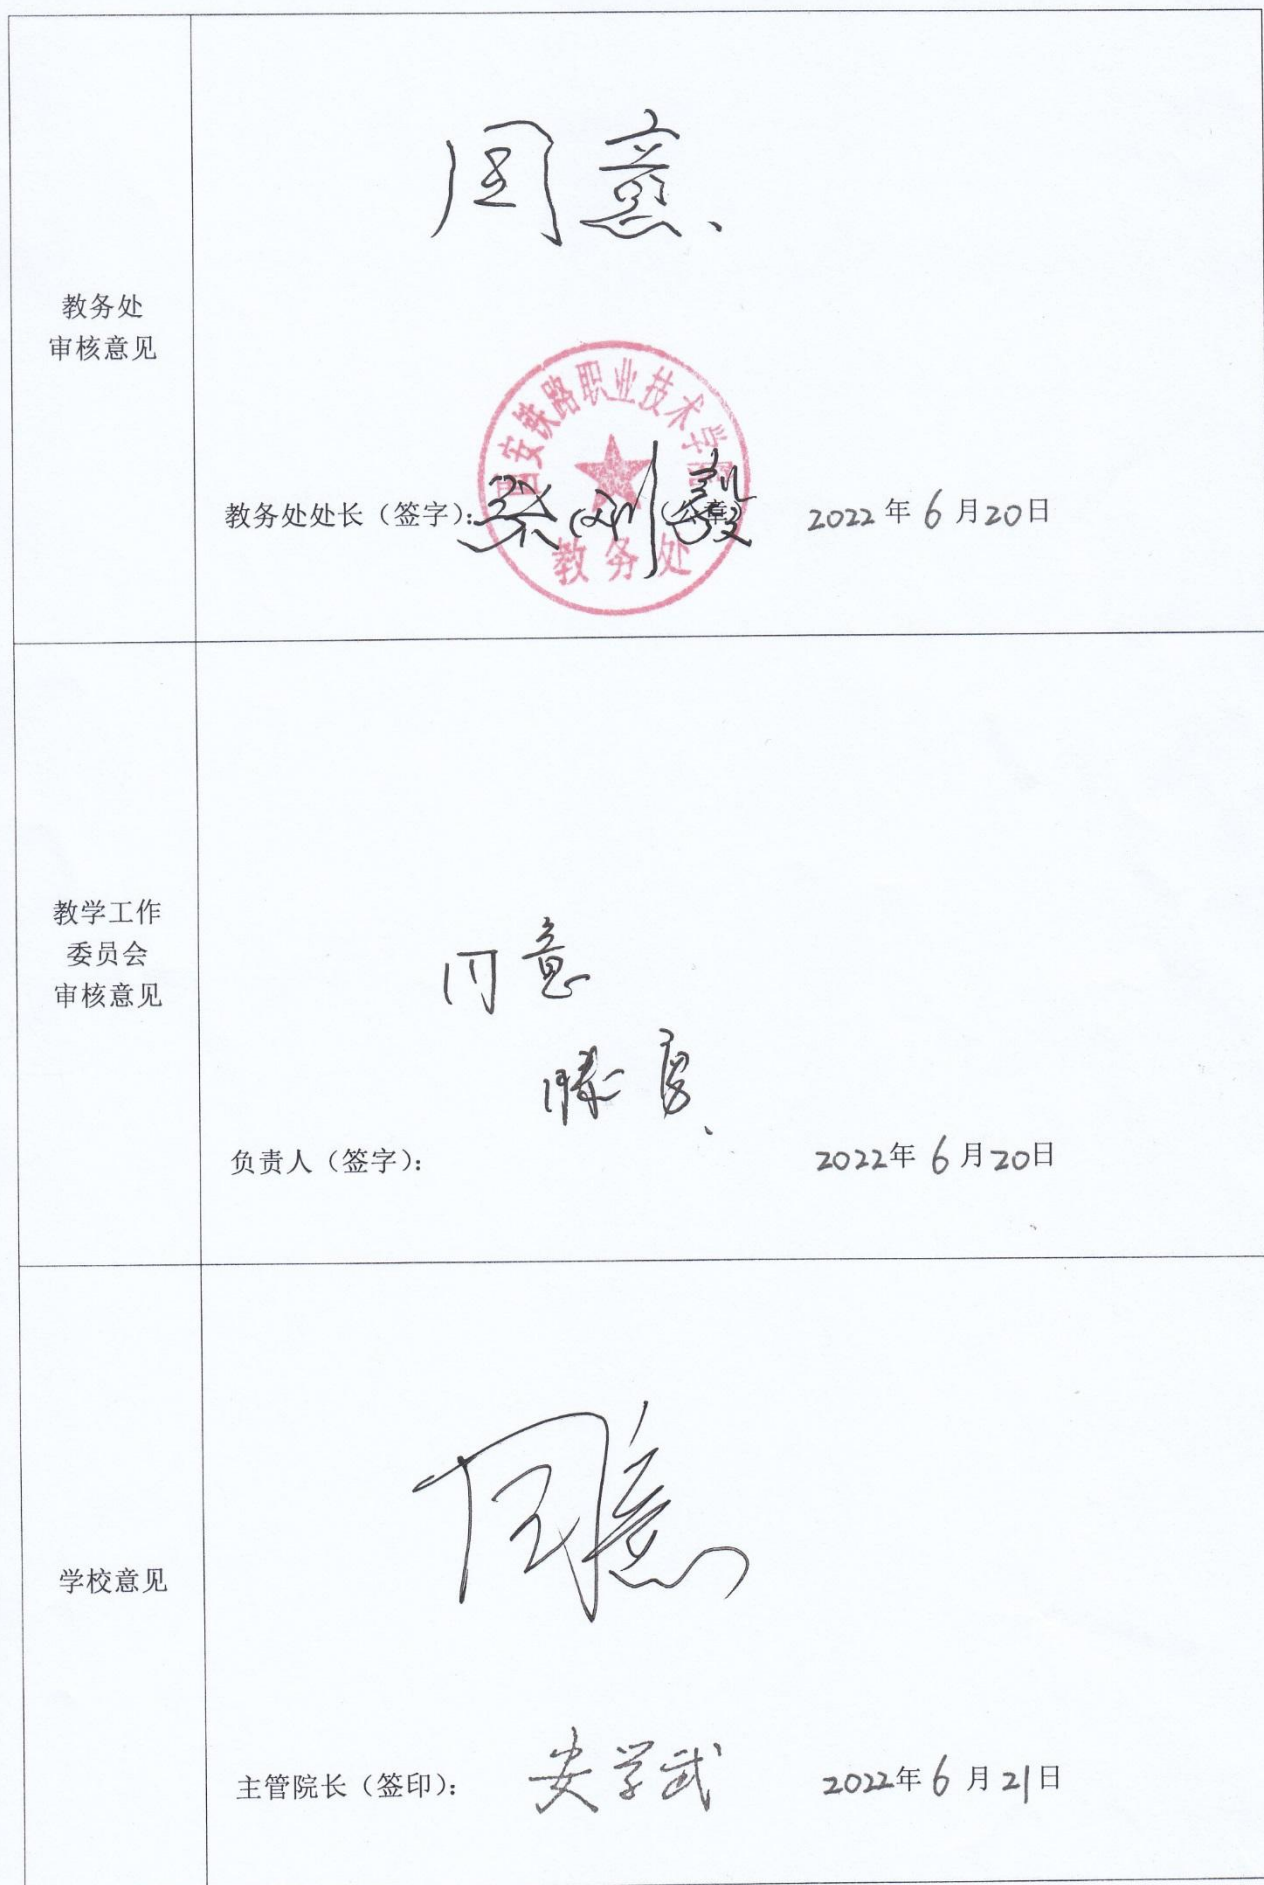 教务处
审核意见
同意
西安铁路职业技术学院
教务处
教务处处长（签字）: （公章） 2022年6月20日
教学工作
委员会
审核意见
同意
滕勇
负责人（签字）: 2022年6月20日
学校意见
同意
主管院长（签印）: 安学武 2022年6月21日